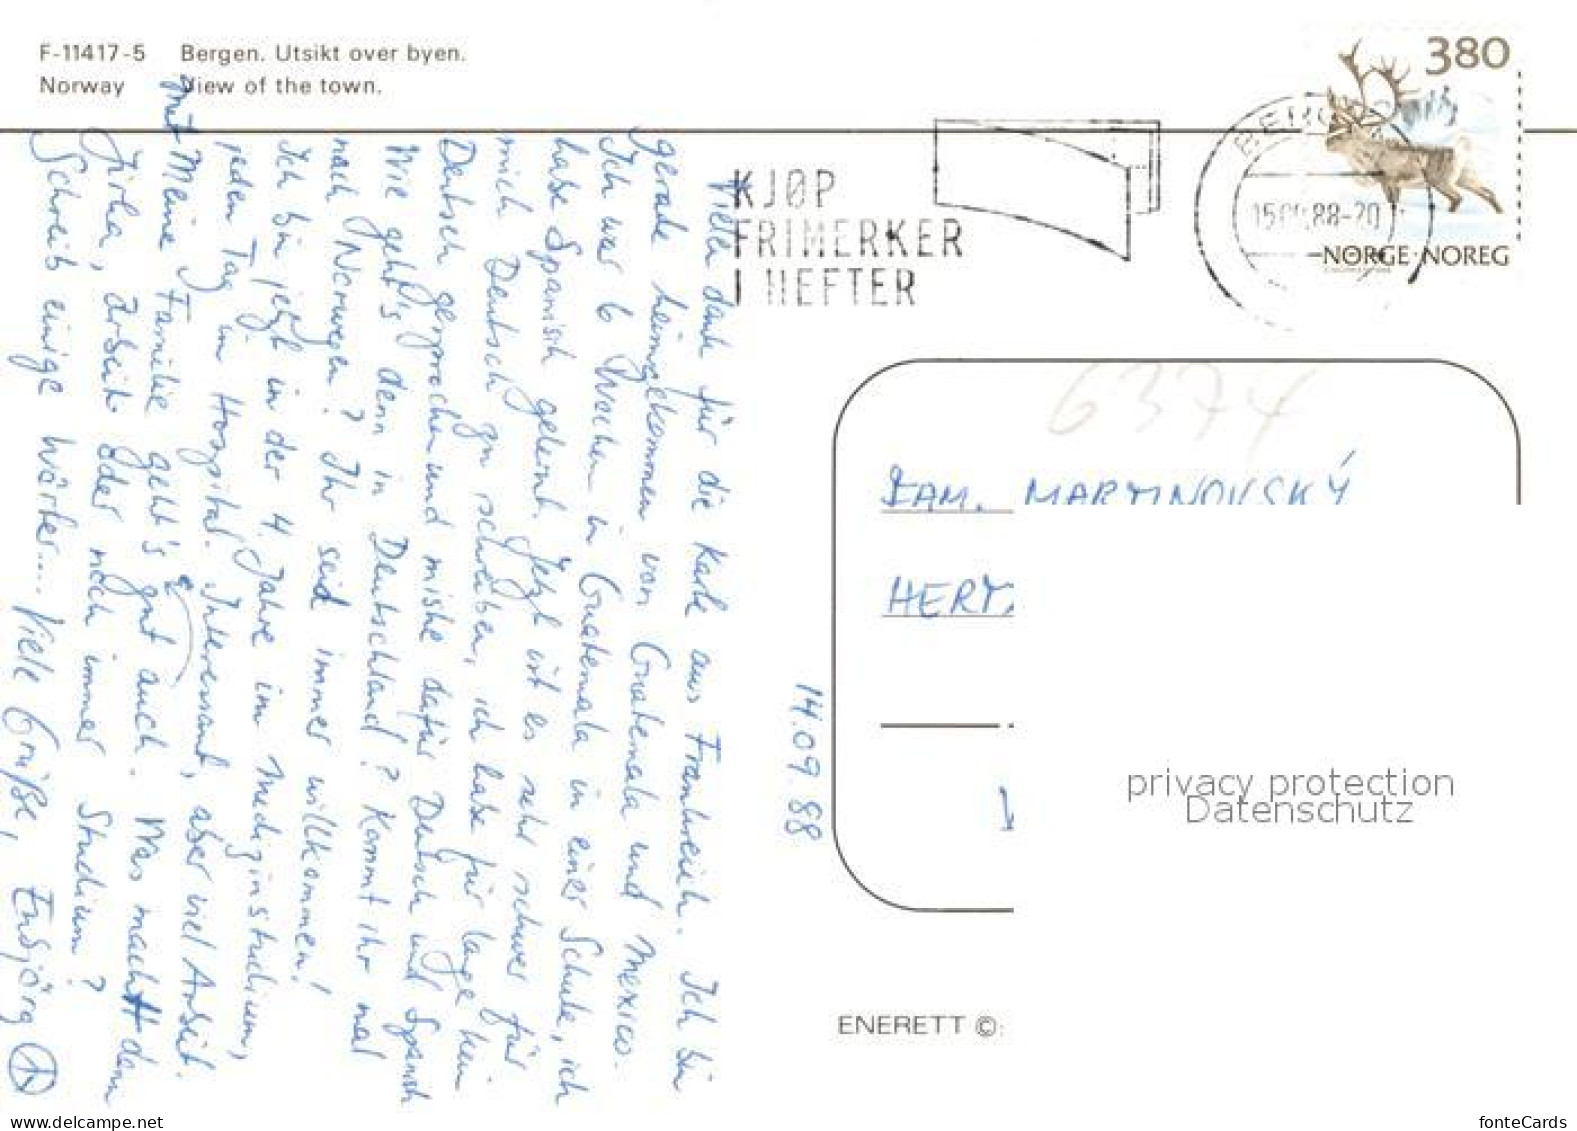 F-11417-5 Bergen. Utsikt over byen.
Norway View of the town.
380
NORGE·NOREG
KJØP
FRIMERKER
I HEFTER
88-20
6374
14.09.88
Vielen dank für die Karte aus Frankreich. Ich bin
gerade heimgekommen von Guatemala und Mexico.
Ich war 6 Wochen in Guatemala in einer Schule, ich
habe Spanisch gelernt. Jetzt ist es sehr schwer für
mich Deutsch zu schreiben, ich habe für lange kein
Deutsch gesprochen und mishe dafür Deutsch und Spanish
Wie geht's denn in Deutschland? Kommt ihr mal
nach Norwegen? Ihr seid immer willkommen!
Ich bin jetzt in der 4. Jahre im Medizinstudium,
jeden Tag im Hospital. Interessant, aber viel Arbeit.
Met Meine Familie geht's gut auch. Was macht denn
Jirka, Arbeit oder noch immer Studium?
Schreib einige Wörter.... Viele Grüße, Endjörg
FAM. MARTINOVSKÝ
privacy protection
Datenschutz
ENERETT ©:
fonteCards